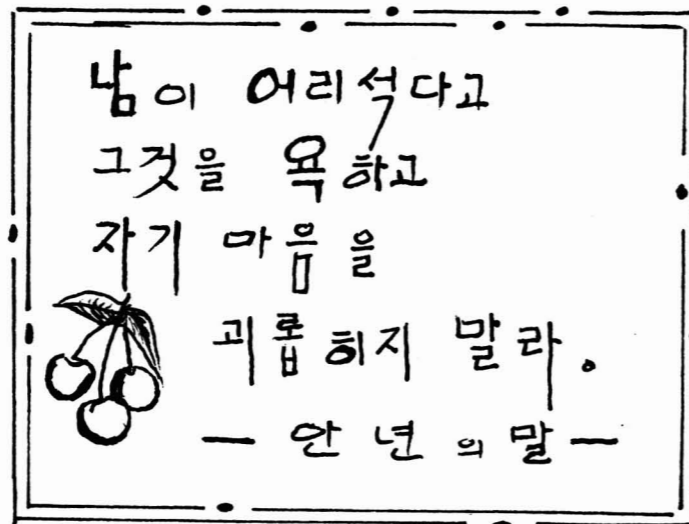 남이 어리석다고
그것을 욕하고
자기 마음을
괴롭히지 말라.
— 안년의 말 —